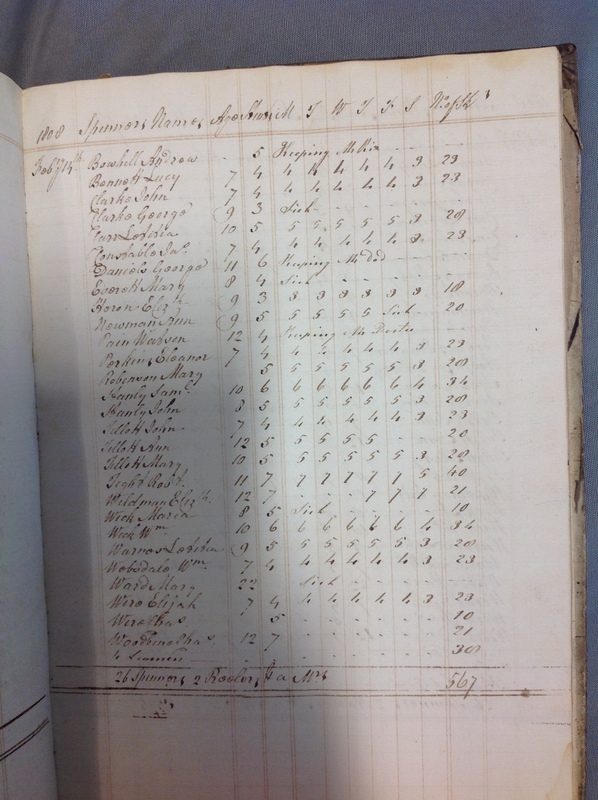 1808 Spinners Names Age Stint M T W T F S No of Sk
Feby 14th Bowhill Andrew - 5 Keeping - - - -
Bennett Lucy 7 4 4 4 4 4 4 3 23
Clarke John 7 4 4 4 4 4 4 3 23
Clarke George 9 3 Sick - - - - -
Clarr Loetitia 10 5 5 5 5 5 5 3 28
Constable Jas. 7 4 4 4 4 4 4 3 23
Daniels George 11 6 Keeping - - - -
Everett Mary 8 4 Sick - - - - -
Heron Elizth 9 3 3 3 3 3 3 3 18
Newman Ann 9 5 5 5 5 5 Sick - 20
Pain Watson 12 4 Keeping - - - -
Perkins Eleanor 7 4 4 4 4 4 4 3 23
Robinson Mary 5 5 5 5 5 5 3 28
Stanly Saml. 10 6 6 6 6 6 6 4 34
Stanly John 8 5 5 5 5 5 5 3 28
Tillott John 7 4 4 4 4 4 4 3 23
Tillott Ann 12 5 5 5 5 5 - - 20
Tillott Mary 10 5 5 5 5 5 5 3 28
Tight Robt. 11 7 7 7 7 7 7 5 40
Wildman Elizth. 12 7 - - - 7 7 7 21
Wick Maria 8 5 Sick - - - - 10
Wick Wm. 10 6 6 6 6 6 6 4 34
Warnes Loetitia 9 5 5 5 5 5 5 3 28
Wobsdale Wm. 7 4 4 4 4 4 4 3 23
Ward Mary 22 Sick - - - -
Were Elijah 7 4 4 4 4 4 4 3 23
Were Chas 5 - - - - - - 10
Chas 12 7 - - - - - - 21
4 30
26 Spinners 2 Reelers & a Mrs 567